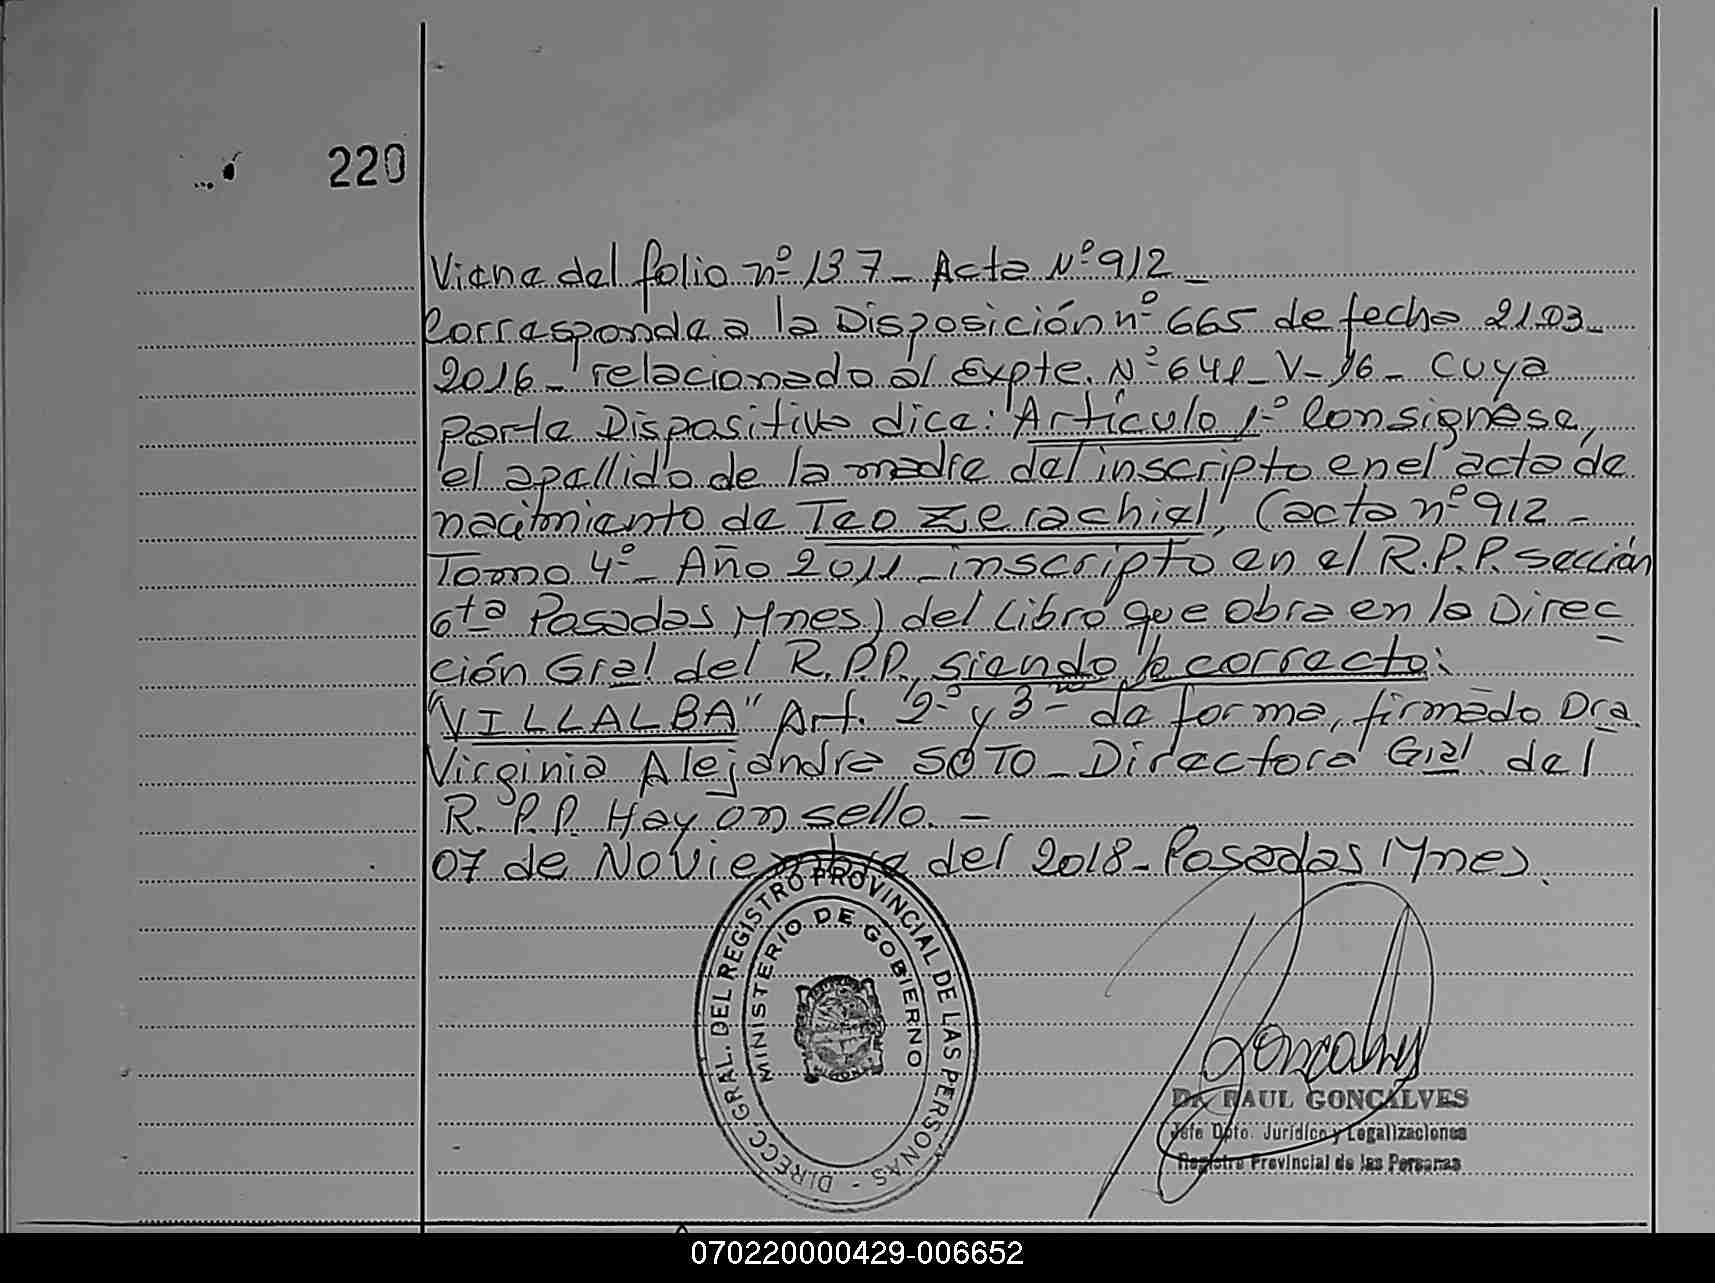 220
Viene del folio nº 137_ Acta Nº 912_
Corresponde a la Disposición nº 665 de fecha 21.03_
2016_ relacionado al Expte. Nº 641_V_16_ cuya
parte Dispositiva dice: "Artículo 1º Consignése,
el apellido de la madre del inscripto en el acta de
nacimiento de Teo Zerachiel, (acta nº 912 _
Tomo 4º_ Año 2011_ inscripto en el R.P.P. sección
6ta Posadas Mnes) del Libro que obra en la Direc
ción Gral del R.P.P., siendo lo correcto:
"VILLALBA" Art. 2º y 3º de forma, firmado Dra.
Virginia Alejandra SOTO_ Directora Gral del
R.P.P. Hay un sello._
07 de Noviembre del 2018_ Posadas Mnes.
DIRECC. GRAL. DEL REGISTRO PROVINCIAL DE LAS PERSONAS -
MINISTERIO DE GOBIERNO
Goncalves
Dr. RAUL GONCALVES
Jefe Dpto. Jurídico y Legalizaciones
Registro Provincial de las Personas
070220000429-006652